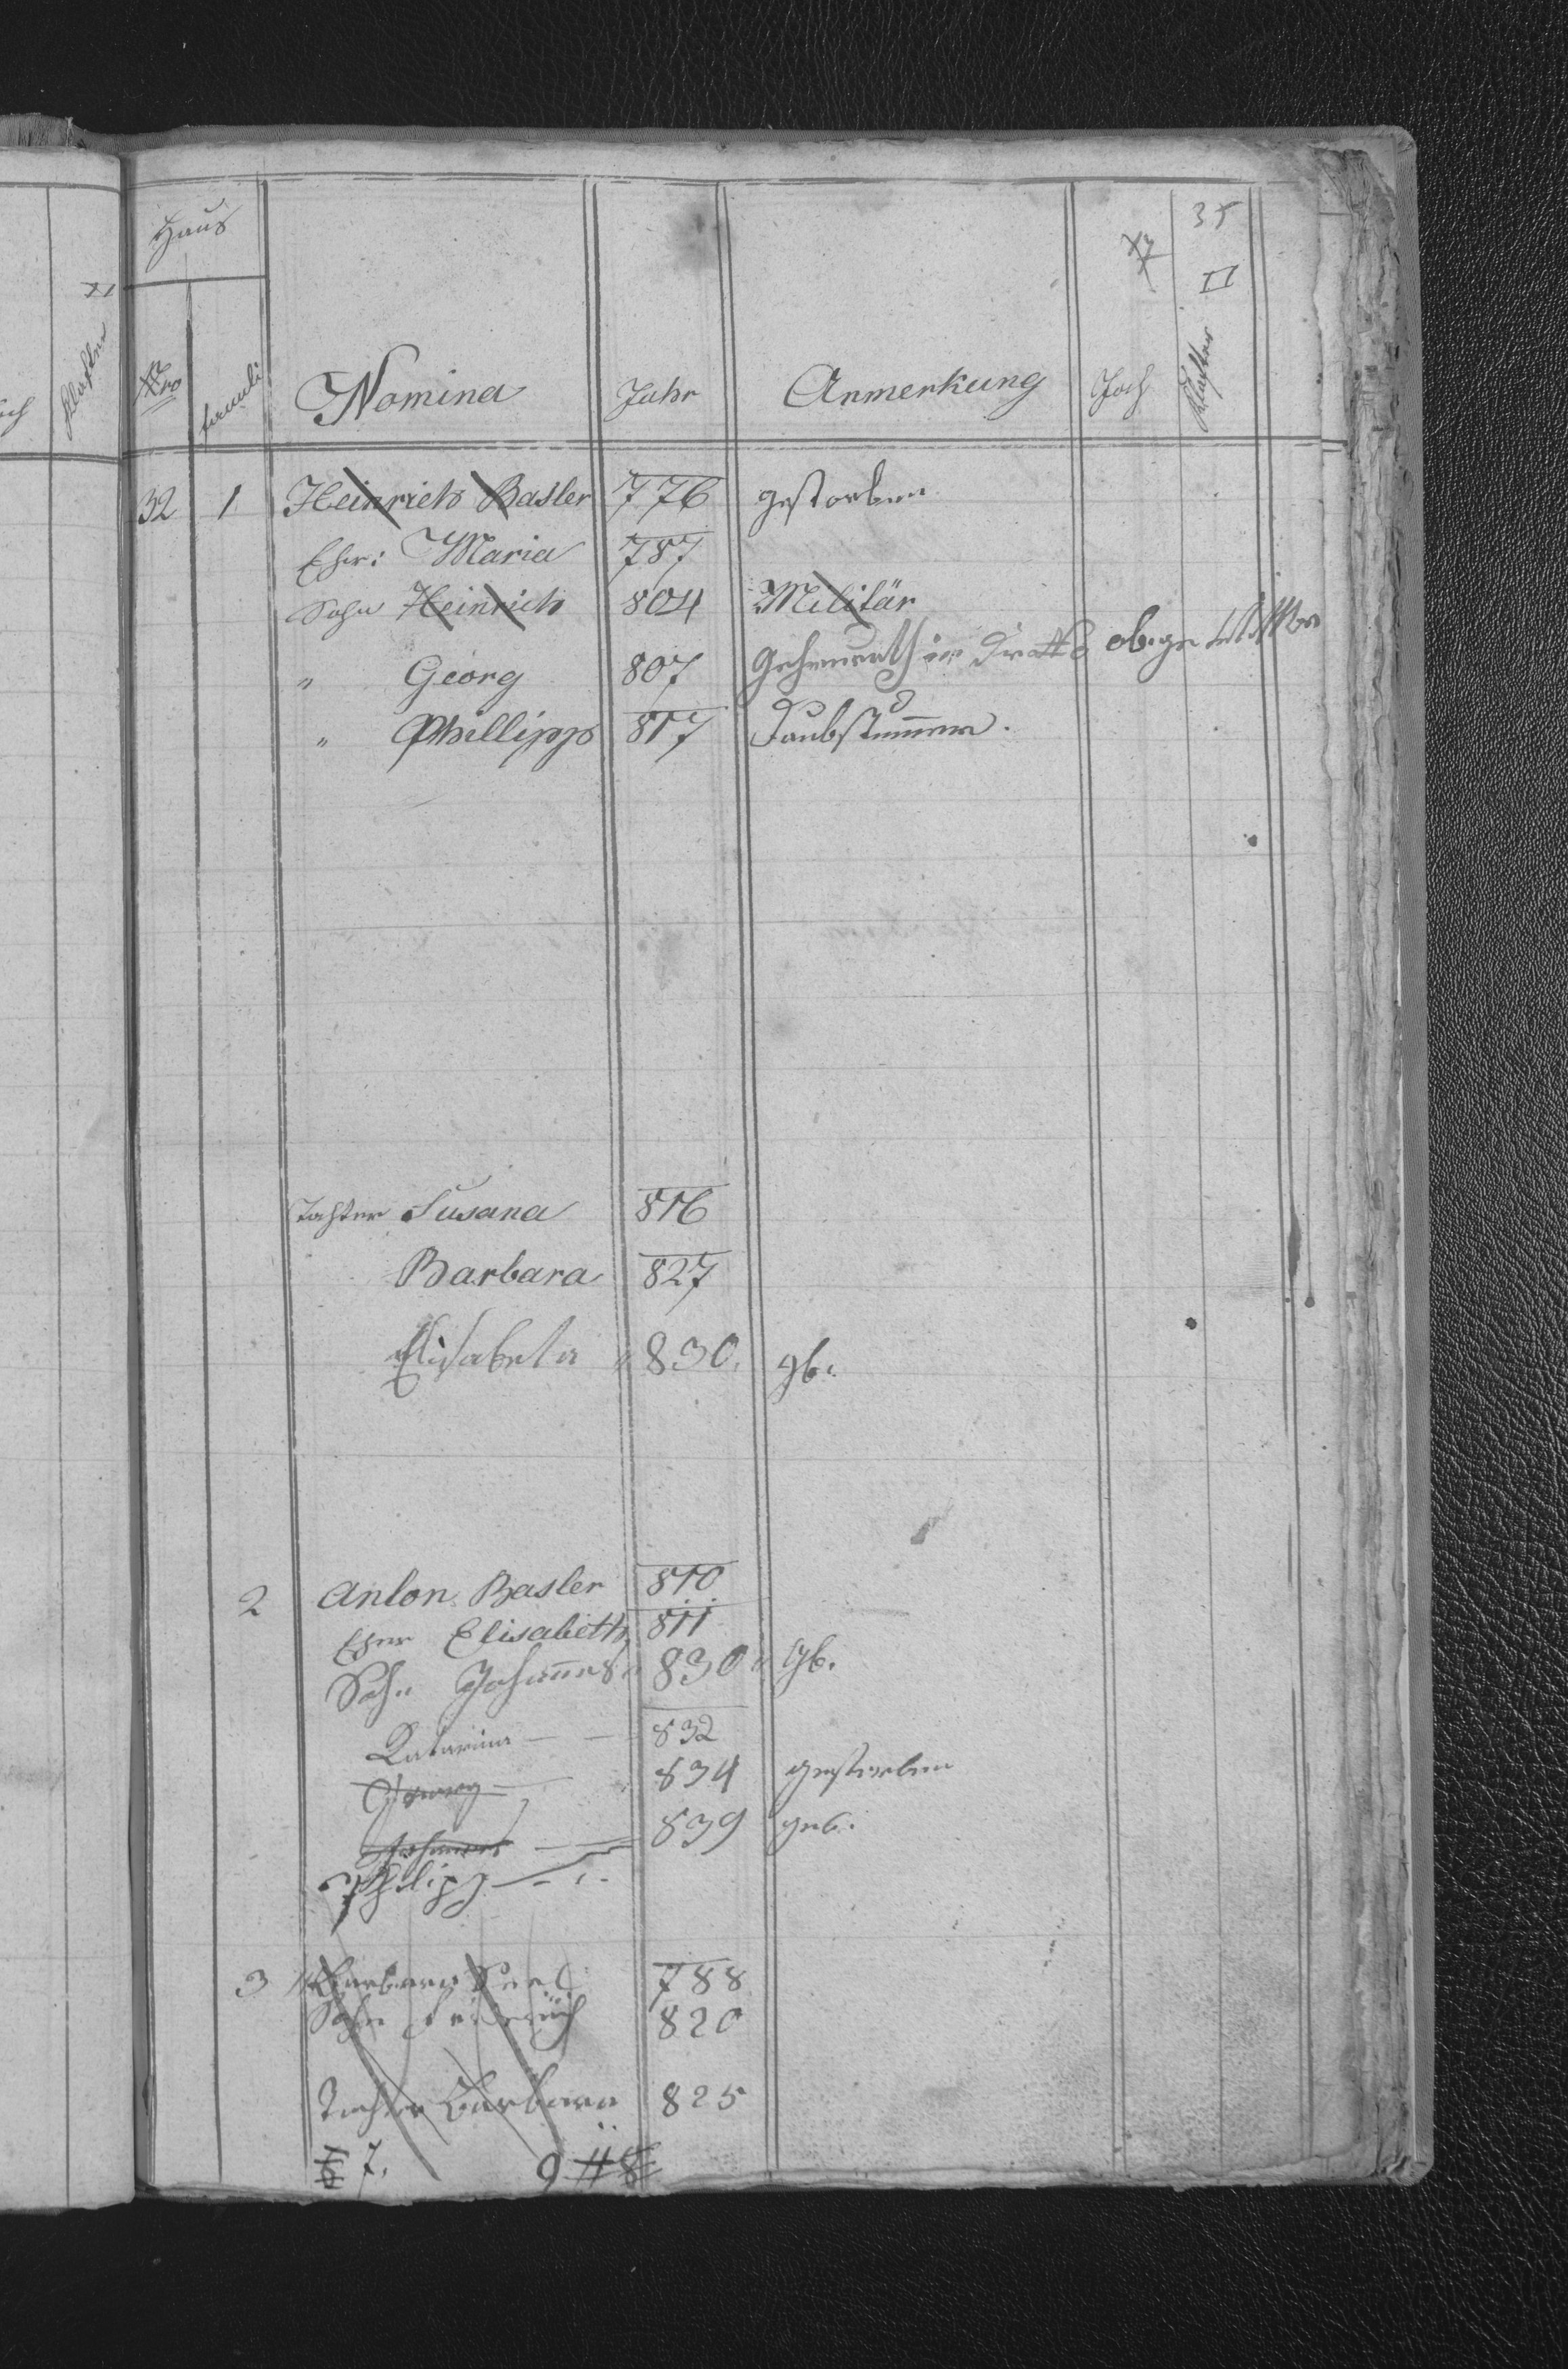 Haus
35
II
Nro
famili
Nomina
Jahr
Anmerkung
Joch
Klafter
32 1 Heinrich Basler 776 gestorben
Ehw: Maria 787
Sohn Heinrich 804 Militär
" Georg 807
" Phillipp 817 Daubstummer.
Tochter Susana 816
Barbara 827
Elisabeta " 830. gb.
2 Anton Basler 810
Ehw Elisabeth 811
Sohn Johannes " 830 " gb.
Katarina 832
Georg 834 gestorben
Johannes 839 geb.
Philipp
3 Barbara 788
Sohn Friderich 820
Tochter Barbara 825
7. 9 # 8